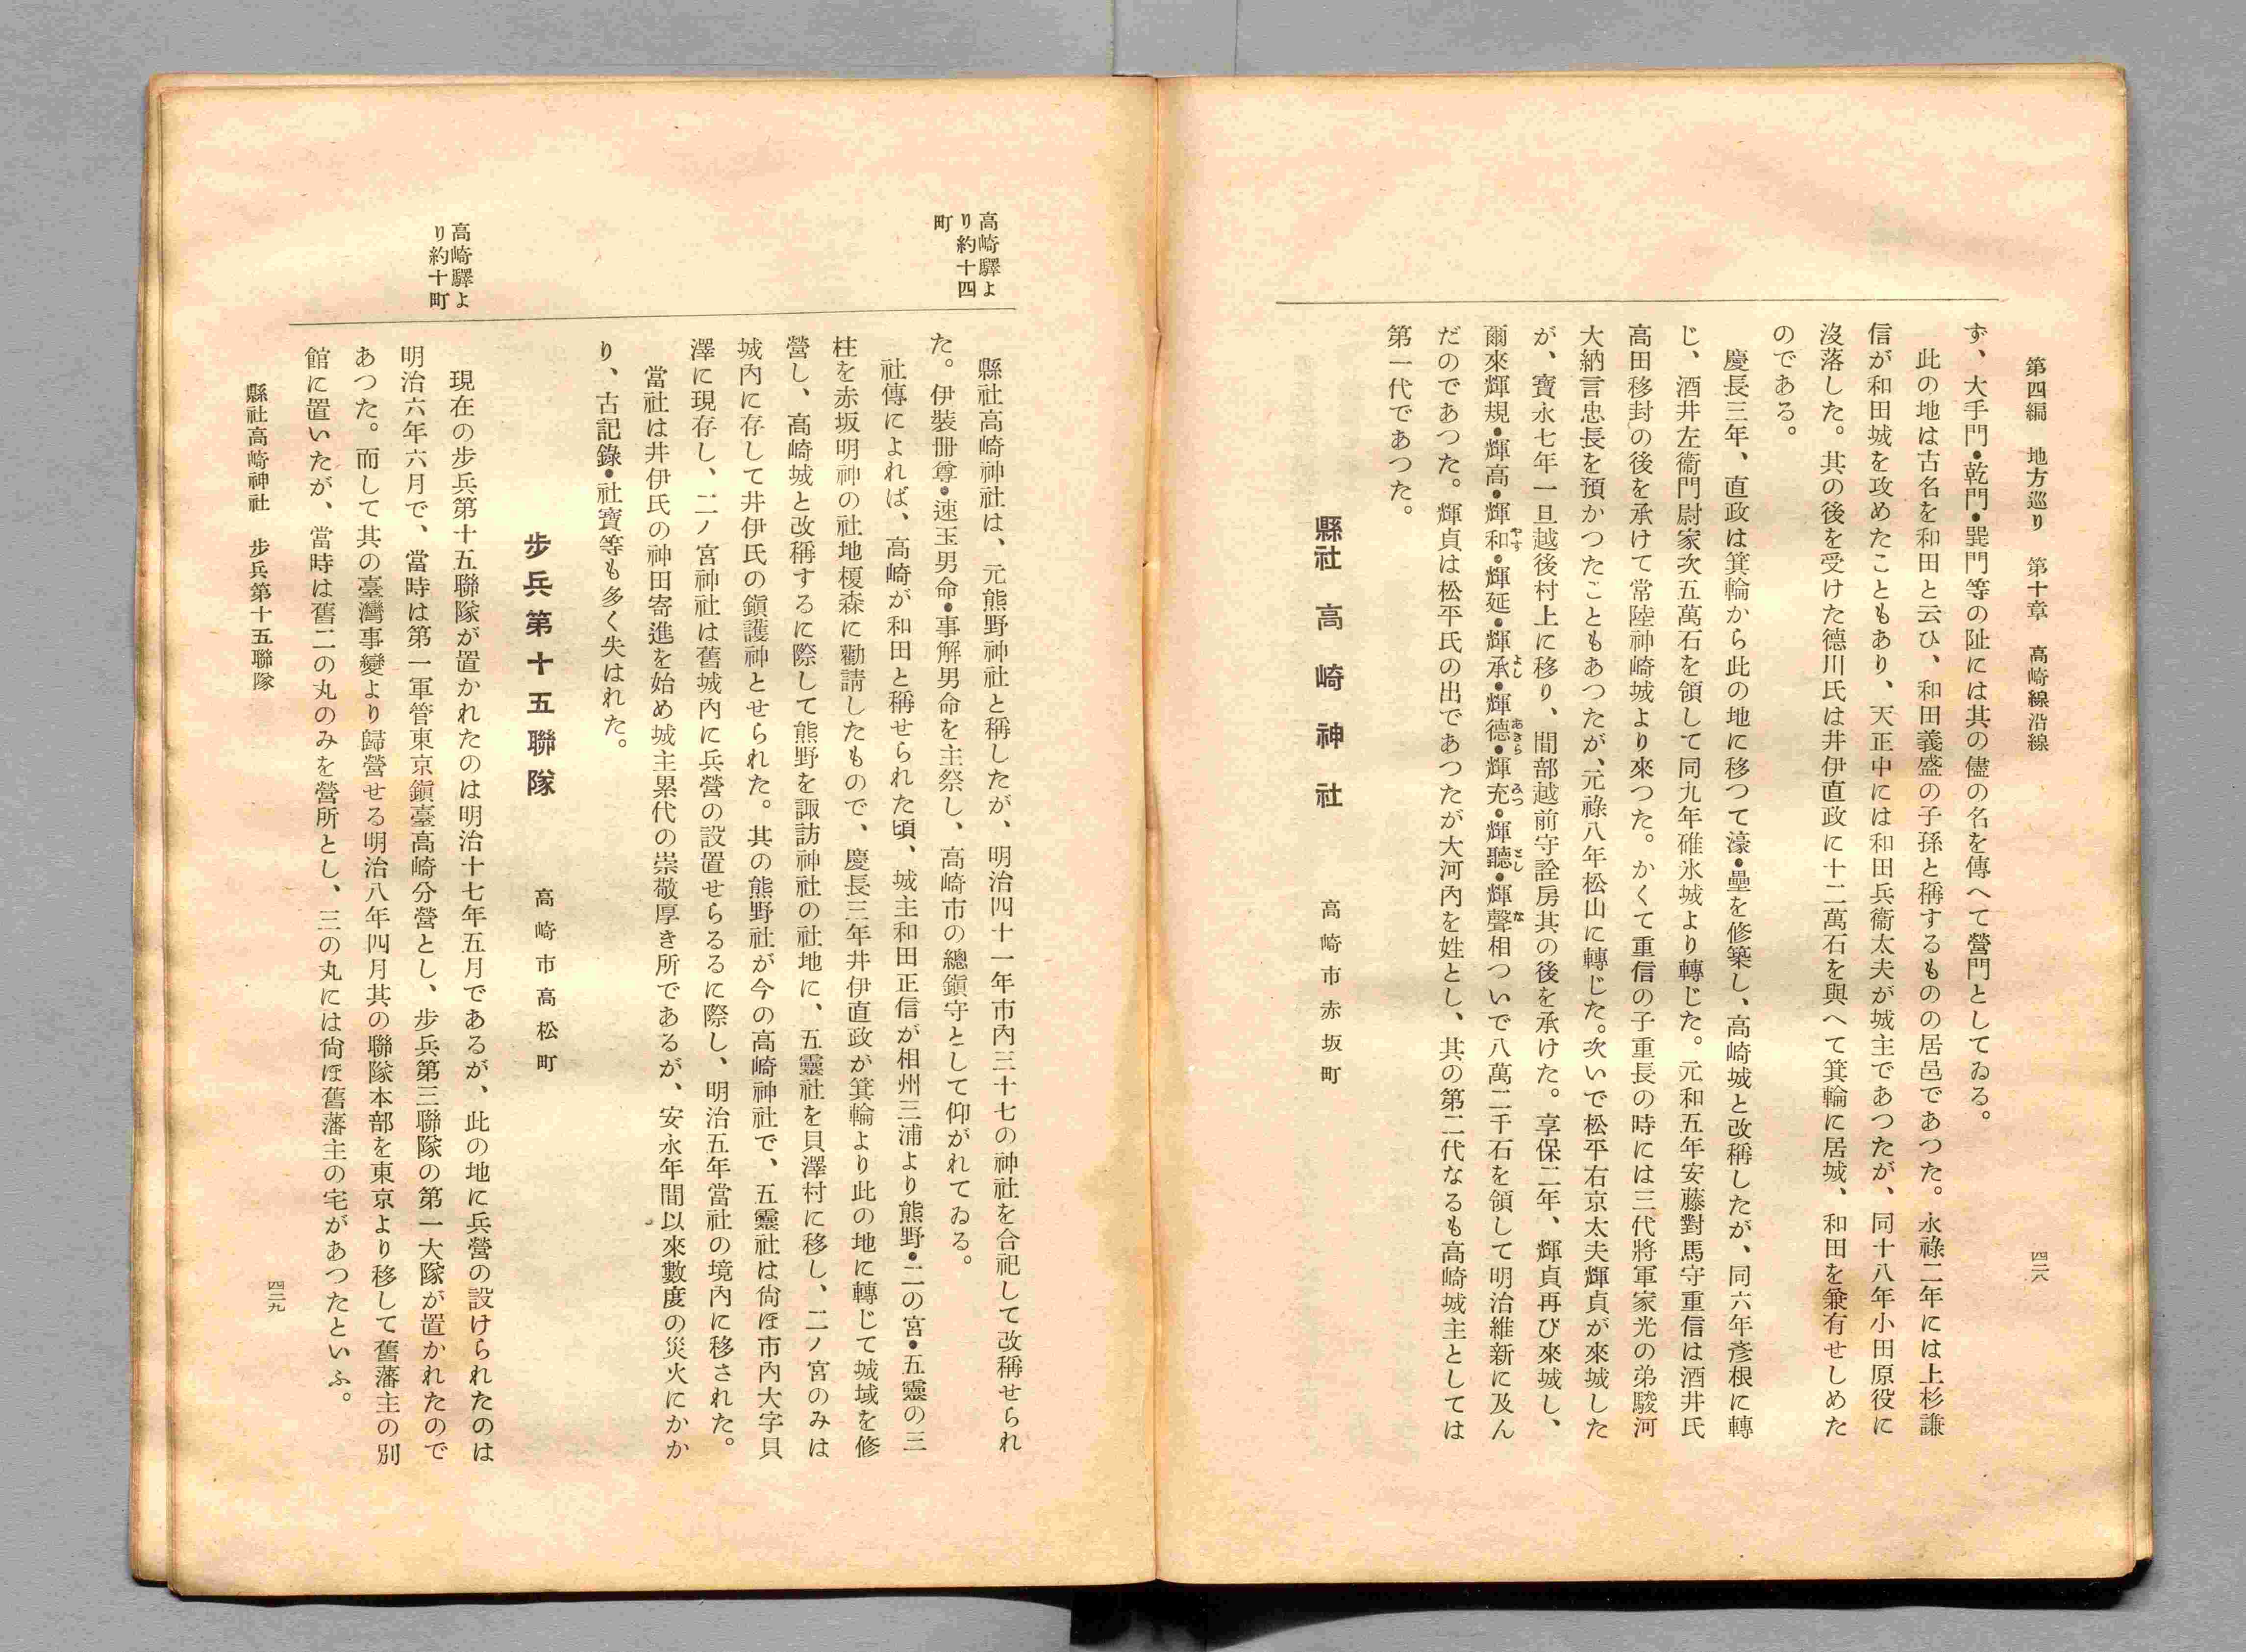 第四編　地方巡り　第十章　高崎線沿線
四二八
ず、大手門・乾門・巽門等の阯には其の儘の名を傳へて營門としてゐる。
此の地は古名を和田と云ひ、和田義盛の子孫と稱するものの居邑であつた。永祿二年には上杉謙
信が和田城を攻めたこともあり、天正中には和田兵衞太夫が城主であつたが、同十八年小田原役に
沒落した。其の後を受けた德川氏は井伊直政に十二萬石を與へて箕輪に居城、和田を兼有せしめた
のである。
慶長三年、直政は箕輪から此の地に移つて濠・壘を修築し、高崎城と改稱したが、同六年彥根に轉
じ、酒井左衞門尉家次五萬石を領して同九年碓氷城より轉じた。元和五年安藤對馬守重信は酒井氏
高田移封の後を承けて常陸神崎城より來つた。かくて重信の子重長の時には三代將軍家光の弟駿河
大納言忠長を預かつたこともあつたが、元祿八年松山に轉じた。次いで松平右京太夫輝貞が來城した
が、寶永七年一旦越後村上に移り、間部越前守詮房其の後を承けた。享保二年、輝貞再び來城し、
爾來輝規・輝高・輝和やす・輝延・輝承よし・輝德あきら・輝充みつ・輝聽とし・輝聲な相ついで八萬二千石を領して明治維新に及ん
だのであつた。輝貞は松平氏の出であつたが大河內を姓とし、其の第二代なるも高崎城主としては
第一代であつた。
縣社　高崎神社　高崎市赤坂町
高崎驛よ
り約十四
町
縣社高崎神社は、元熊野神社と稱したが、明治四十一年市內三十七の神社を合祀して改稱せられ
た。伊裝冊尊・速玉男命・事解男命を主祭し、高崎市の總鎭守として仰がれてゐる。
社傳によれば、高崎が和田と稱せられた頃、城主和田正信が相州三浦より熊野・二の宮・五靈の三
柱を赤坂明神の社地榎森に勸請したもので、慶長三年井伊直政が箕輪より此の地に轉じて城域を修
營し、高崎城と改稱するに際して熊野を諏訪神社の社地に、五靈社を貝澤村に移し、二ノ宮のみは
城內に存して井伊氏の鎭護神とせられた。其の熊野社が今の高崎神社で、五靈社は尙ほ市內大字貝
澤に現存し、二ノ宮神社は舊城內に兵營の設置せらるるに際し、明治五年當社の境內に移された。
當社は井伊氏の神田寄進を始め城主累代の崇敬厚き所であるが、安永年間以來數度の災火にかか
り、古記錄・社寶等も多く失はれた。
步兵第十五聯隊　高崎市高松町
高崎驛よ
り約十町
現在の步兵第十五聯隊が置かれたのは明治十七年五月であるが、此の地に兵營の設けられたのは
明治六年六月で、當時は第一軍管東京鎭臺高崎分營とし、步兵第三聯隊の第一大隊が置かれたので
あつた。而して其の臺灣事變より歸營せる明治八年四月其の聯隊本部を東京より移して舊藩主の別
館に置いたが、當時は舊二の丸のみを營所とし、三の丸には尙ほ舊藩主の宅があつたといふ。
縣社高崎神社　步兵第十五聯隊
四二九